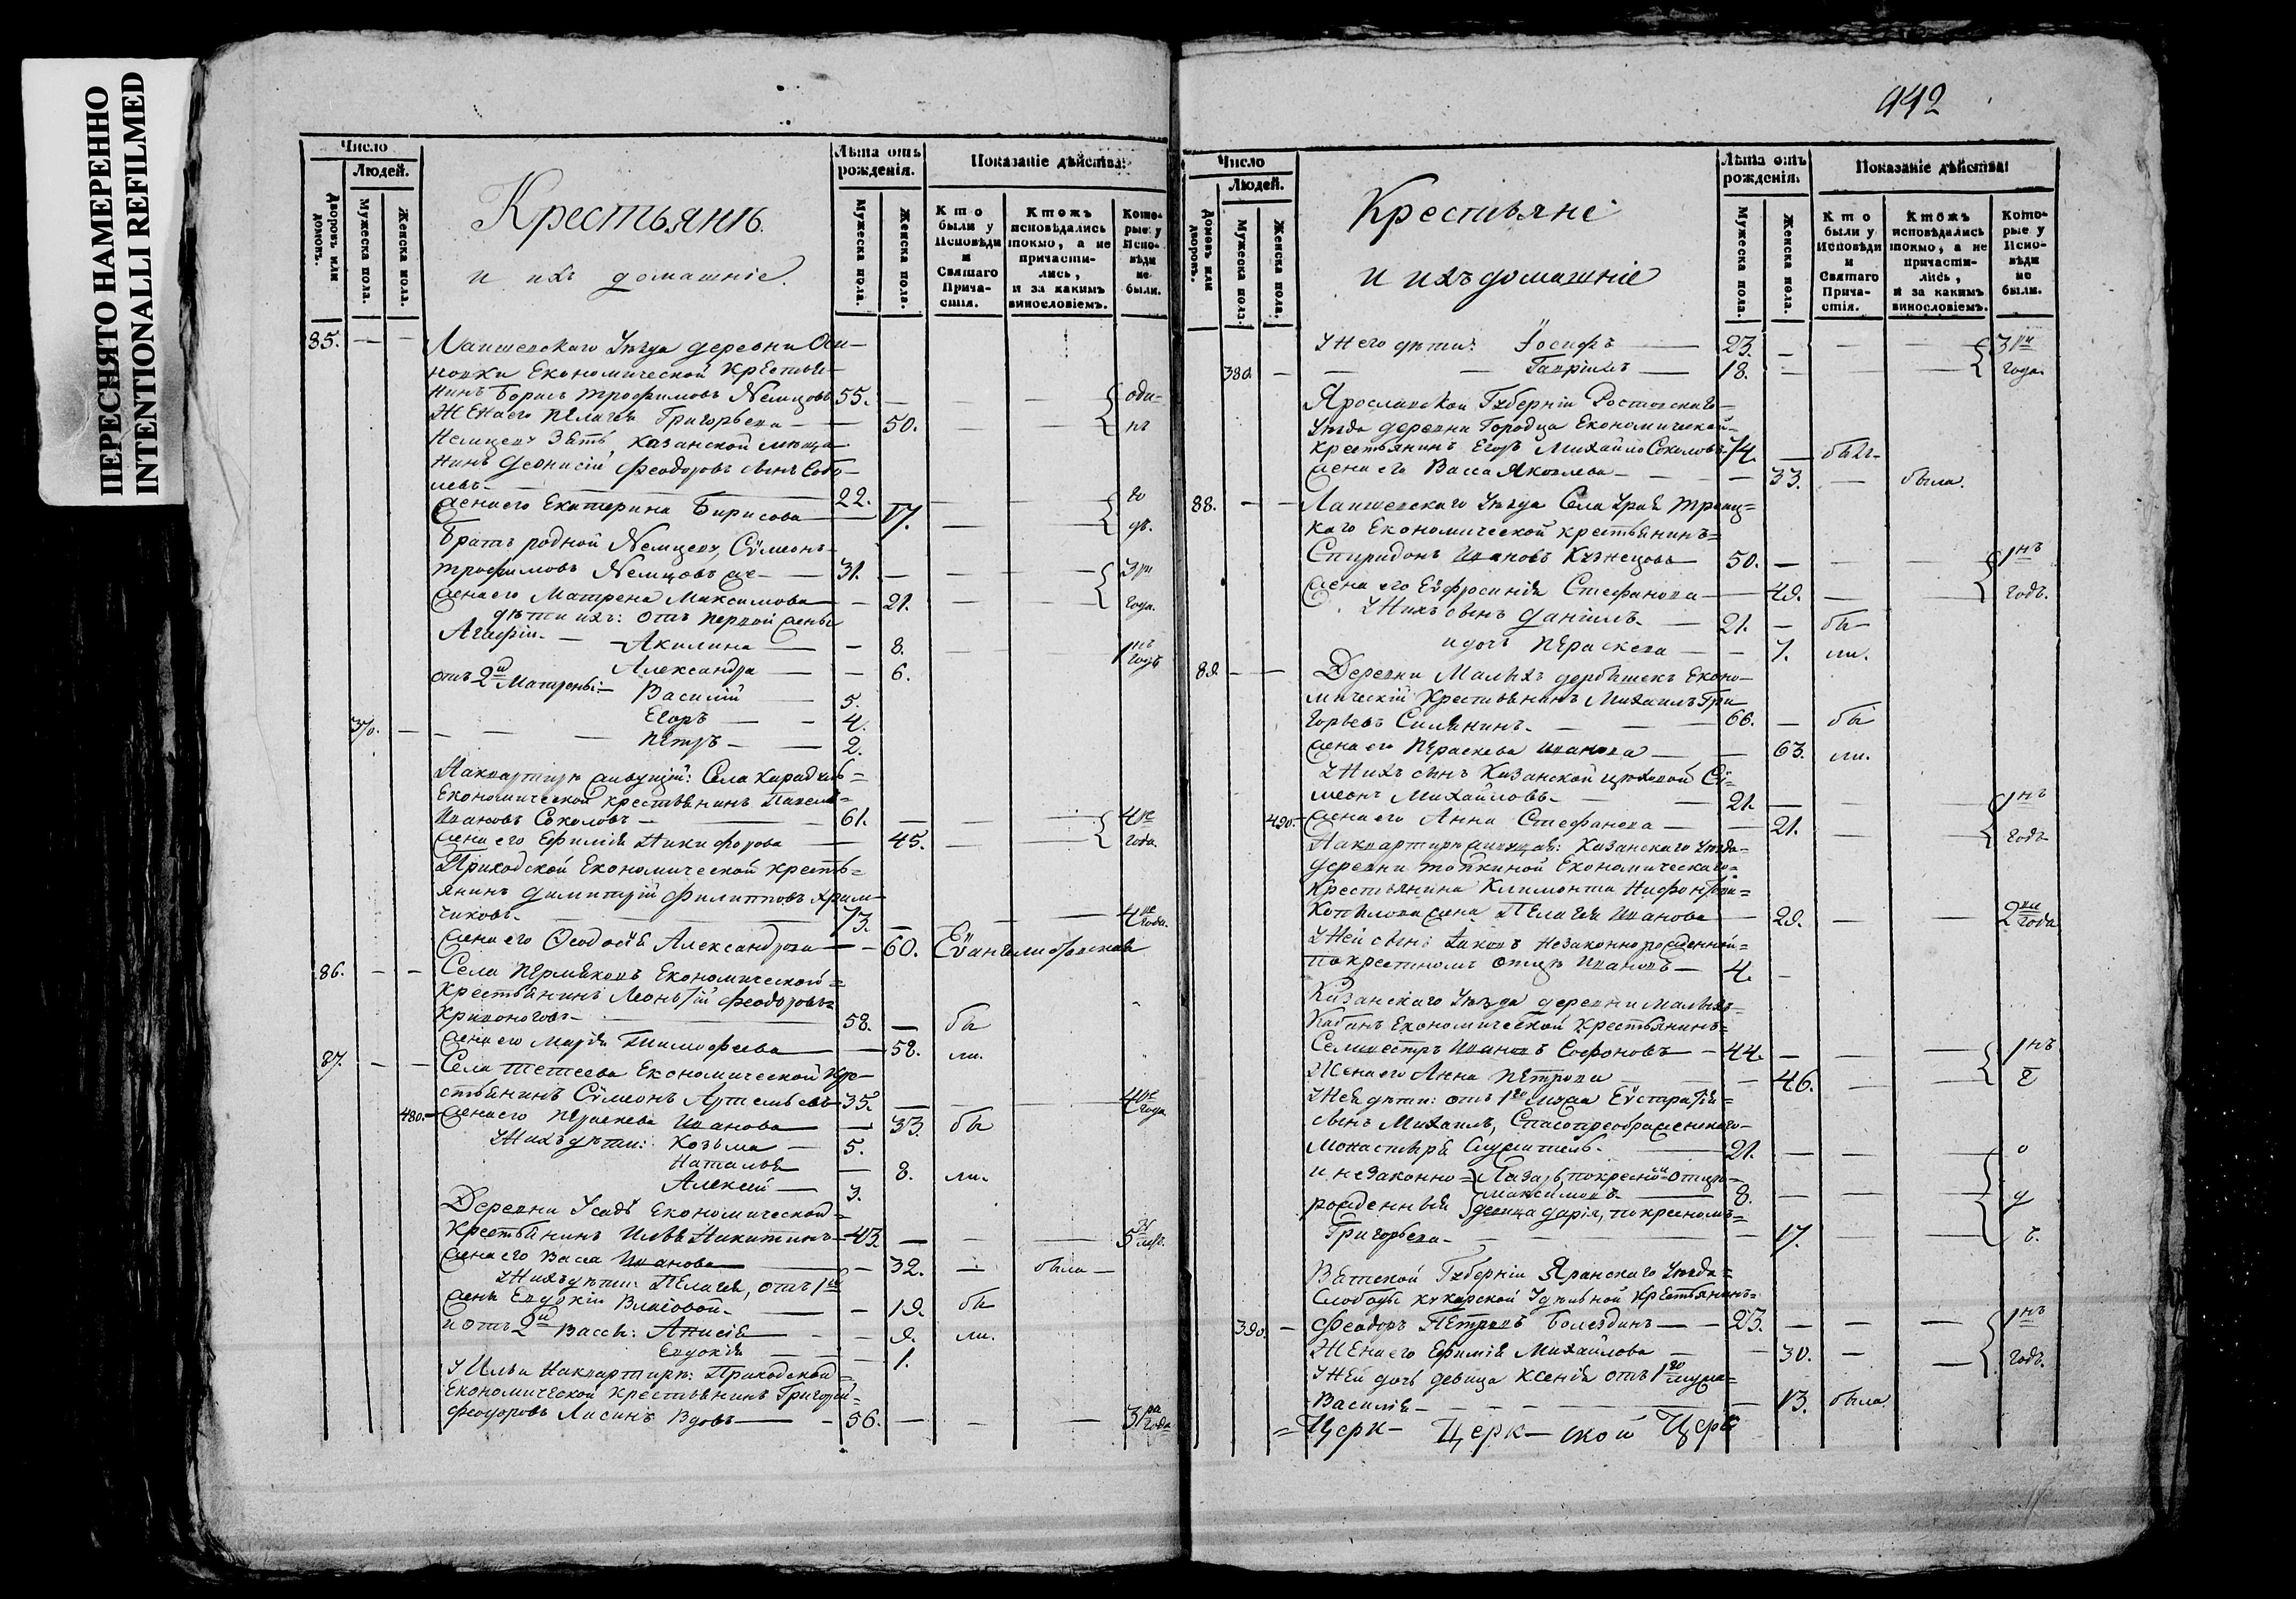 ПЕРЕСНЯТО НАМЕРЕННО
INTENTIONALLI REFILMED
Число
Людей.
Дворовъ или домовъ.
Мужеска пола.
Женска пола.
Крестьянѣ
и ихъ домашніе.
Лѣта отъ рожденія.
Мужеска пола.
Женска пола.
Показаніе дѣйства:
Кто были у Исповѣди и Святаго Причастія.
Ктожъ исповѣдались токмо, а не причастились, и за какимъ винословіемъ.
Которые у Исповѣди не были.
85. — — Лаишевскаго Уѣзда деревни Оси-
новки Економической Крестья-
нинъ Борисъ Трофимовъ Немцовъ 55. — — — оди-
Жена его Пелагея Григорьева — 50. — — нъ
Немцову Зять Казанской мѣща-
нинъ Деонисій Феодоровъ сынъ Собо-
левъ — 22. — — го
жена его Екатерина Борисова — 17. — — дъ.
Братъ родной Немцову, Сѵмеонъ
Трофимовъ Немцовъ же — 31. — — — 3 ри
жена его Матрена Максимова — 21. — — года.
дѣти ихъ: отъ первой жены
Агафіи — Акилина — — 8. — — 1 нъ
Александра — — 6. годъ
отъ 2й Матрены: — Василій 5.
Егоръ — — 4.
370. — — — Петръ — — 2.
На квартирѣ живущій: Села Караду
Економической крестьянинъ
Ивановъ Соколовъ — 61. — — — 4 ре
жена его Ефимія Никифорова — 45. — — года.
Приходской Економической кресть=
янинъ Димитрій Филипповъ
чиковъ — 73. — — — 4 ре года.
жена его Ѳеодосія Александрова — — 60.
86. — — Села Пермяковъ Економической=
Крестьянинъ Леонтій Феодоровъ=
Кривоноговъ — 58. — бы
жена его Марія Тимофеева — 58. ли.
87. — — Села Тетеева Економической Кре-
стьянинъ Сѵмеонъ Артемьевъ — 35. — — — 4 ре года
480. — жена его Параскева Иванова — 33. бы
У нихъ дѣти: Козьма — 5.
Наталья — 8. ли.
Алексей — 3.
Деревни Усадъ Економической=
Крестьянинъ Илья Никитинъ — 43. — — — 5 ть лѣтъ.
жена его Васса Иванова — — 32. — была —
У нихъ дѣти: Пелагея, отъ 1й
жены Евдокіи Власовой — — 19. бы
и отъ 2й Вассы: Анисія — — 9. ли.
Евдокія — — 1.
У Ильи на квартирѣ: Приходской=
Економической Крестьянинъ Григорій=
Феодоровъ Лисинъ Вдовъ — — 56. — — — 3 ри года
442
Число
Людей.
Домовъ или дворовъ.
Мужеска пола.
Женска пола.
Крестьяне
и ихъ домашніе
Лѣта отъ рожденія.
Мужеска пола.
Женска пола.
Показаніе дѣйства:
Кто были у Исповѣди и Святаго Причастія.
Ктожъ исповѣдались токмо, а не причастились, и за какимъ винословіемъ.
Которые у Исповѣди не были.
У него дѣти: Іосифъ — 23. — — — 3 ри
380. — — — Гавріилъ — 18. — — года.
Ярославской Губерніи Ростовскаго=
Уѣзда деревни Городца Економической=
крестьянинъ Егоръ Михайло Соколовъ 74. — былъ.
жена его Васса Яковлева — — 33. — была.
88. — — Лаишевскаго Уѣзда Села Урая Троиц=
каго Економической крестьянинъ=
Спиридонъ Ивановъ Кузнецовъ — 50. — — — 1 нъ
жена его Евфросинія Стефанова — 49. — — годъ.
У нихъ сынъ Даніилъ — — 21. — бы-
и дочь Параскева — — 7. ли.
89. — — Деревни Малыхъ дербышекъ Еконо-
мическій Крестьянинъ Михаилъ Гри-
горьевъ Силянинъ — — 66. — бы
жена его Параскева Иванова — — 63. ли.
У нихъ сынъ Казанской цѣховой Сѵ=
меонъ Михайловъ — — 21. — — — 1 нъ
490. — жена его Анна Стефанова — — 21. — — годъ
На квартирѣ живущая: Казанскаго Уѣзда=
деревни Економическаго=
Крестьянина Климонта
Копылова жена Пелагея Иванова — 29. — — 2 ва года
У ней сынъ: Іаковъ незаконнорожденной=
по крестномъ отцѣ Ивановъ — 4. —
Казанскаго Уѣзда деревни малыхъ=
Кабанъ Економической Крестьянинъ=
Селивестръ Ивановъ Софоновъ — 44. — — — 1 нъ
Жена его Анна Петрова — 46. — —
У ней дѣти: отъ 1го мужа Еѵстратія=
сынъ Михаилъ, Спасопреображенскаго=
монастыря служитель — 21. — — — о
и незаконно= Лазарь, по крестно отцѣ
Максимовъ — 8. — — — д
рожденныя девица Дарія, по крестномъ=
Григорьева — — — 17. — —
Вятской Губерніи Яранскаго Уѣзда=
Слободы Кукарской Удѣльной Крестьянинъ=
390. — Феодоръ Петровъ Болездинъ — — 23. — — — 1 нъ
Жена его Ефимія Михайлова — — 30. — — годъ.
У ней дочь девица Ксенія отъ 1го мужа=
Василія — — — — — 13. была.
=Церк— Церк— ской Церк